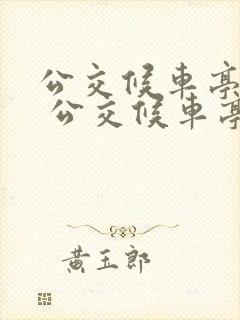 公交候車亭
公交候車亭
黃玉郎